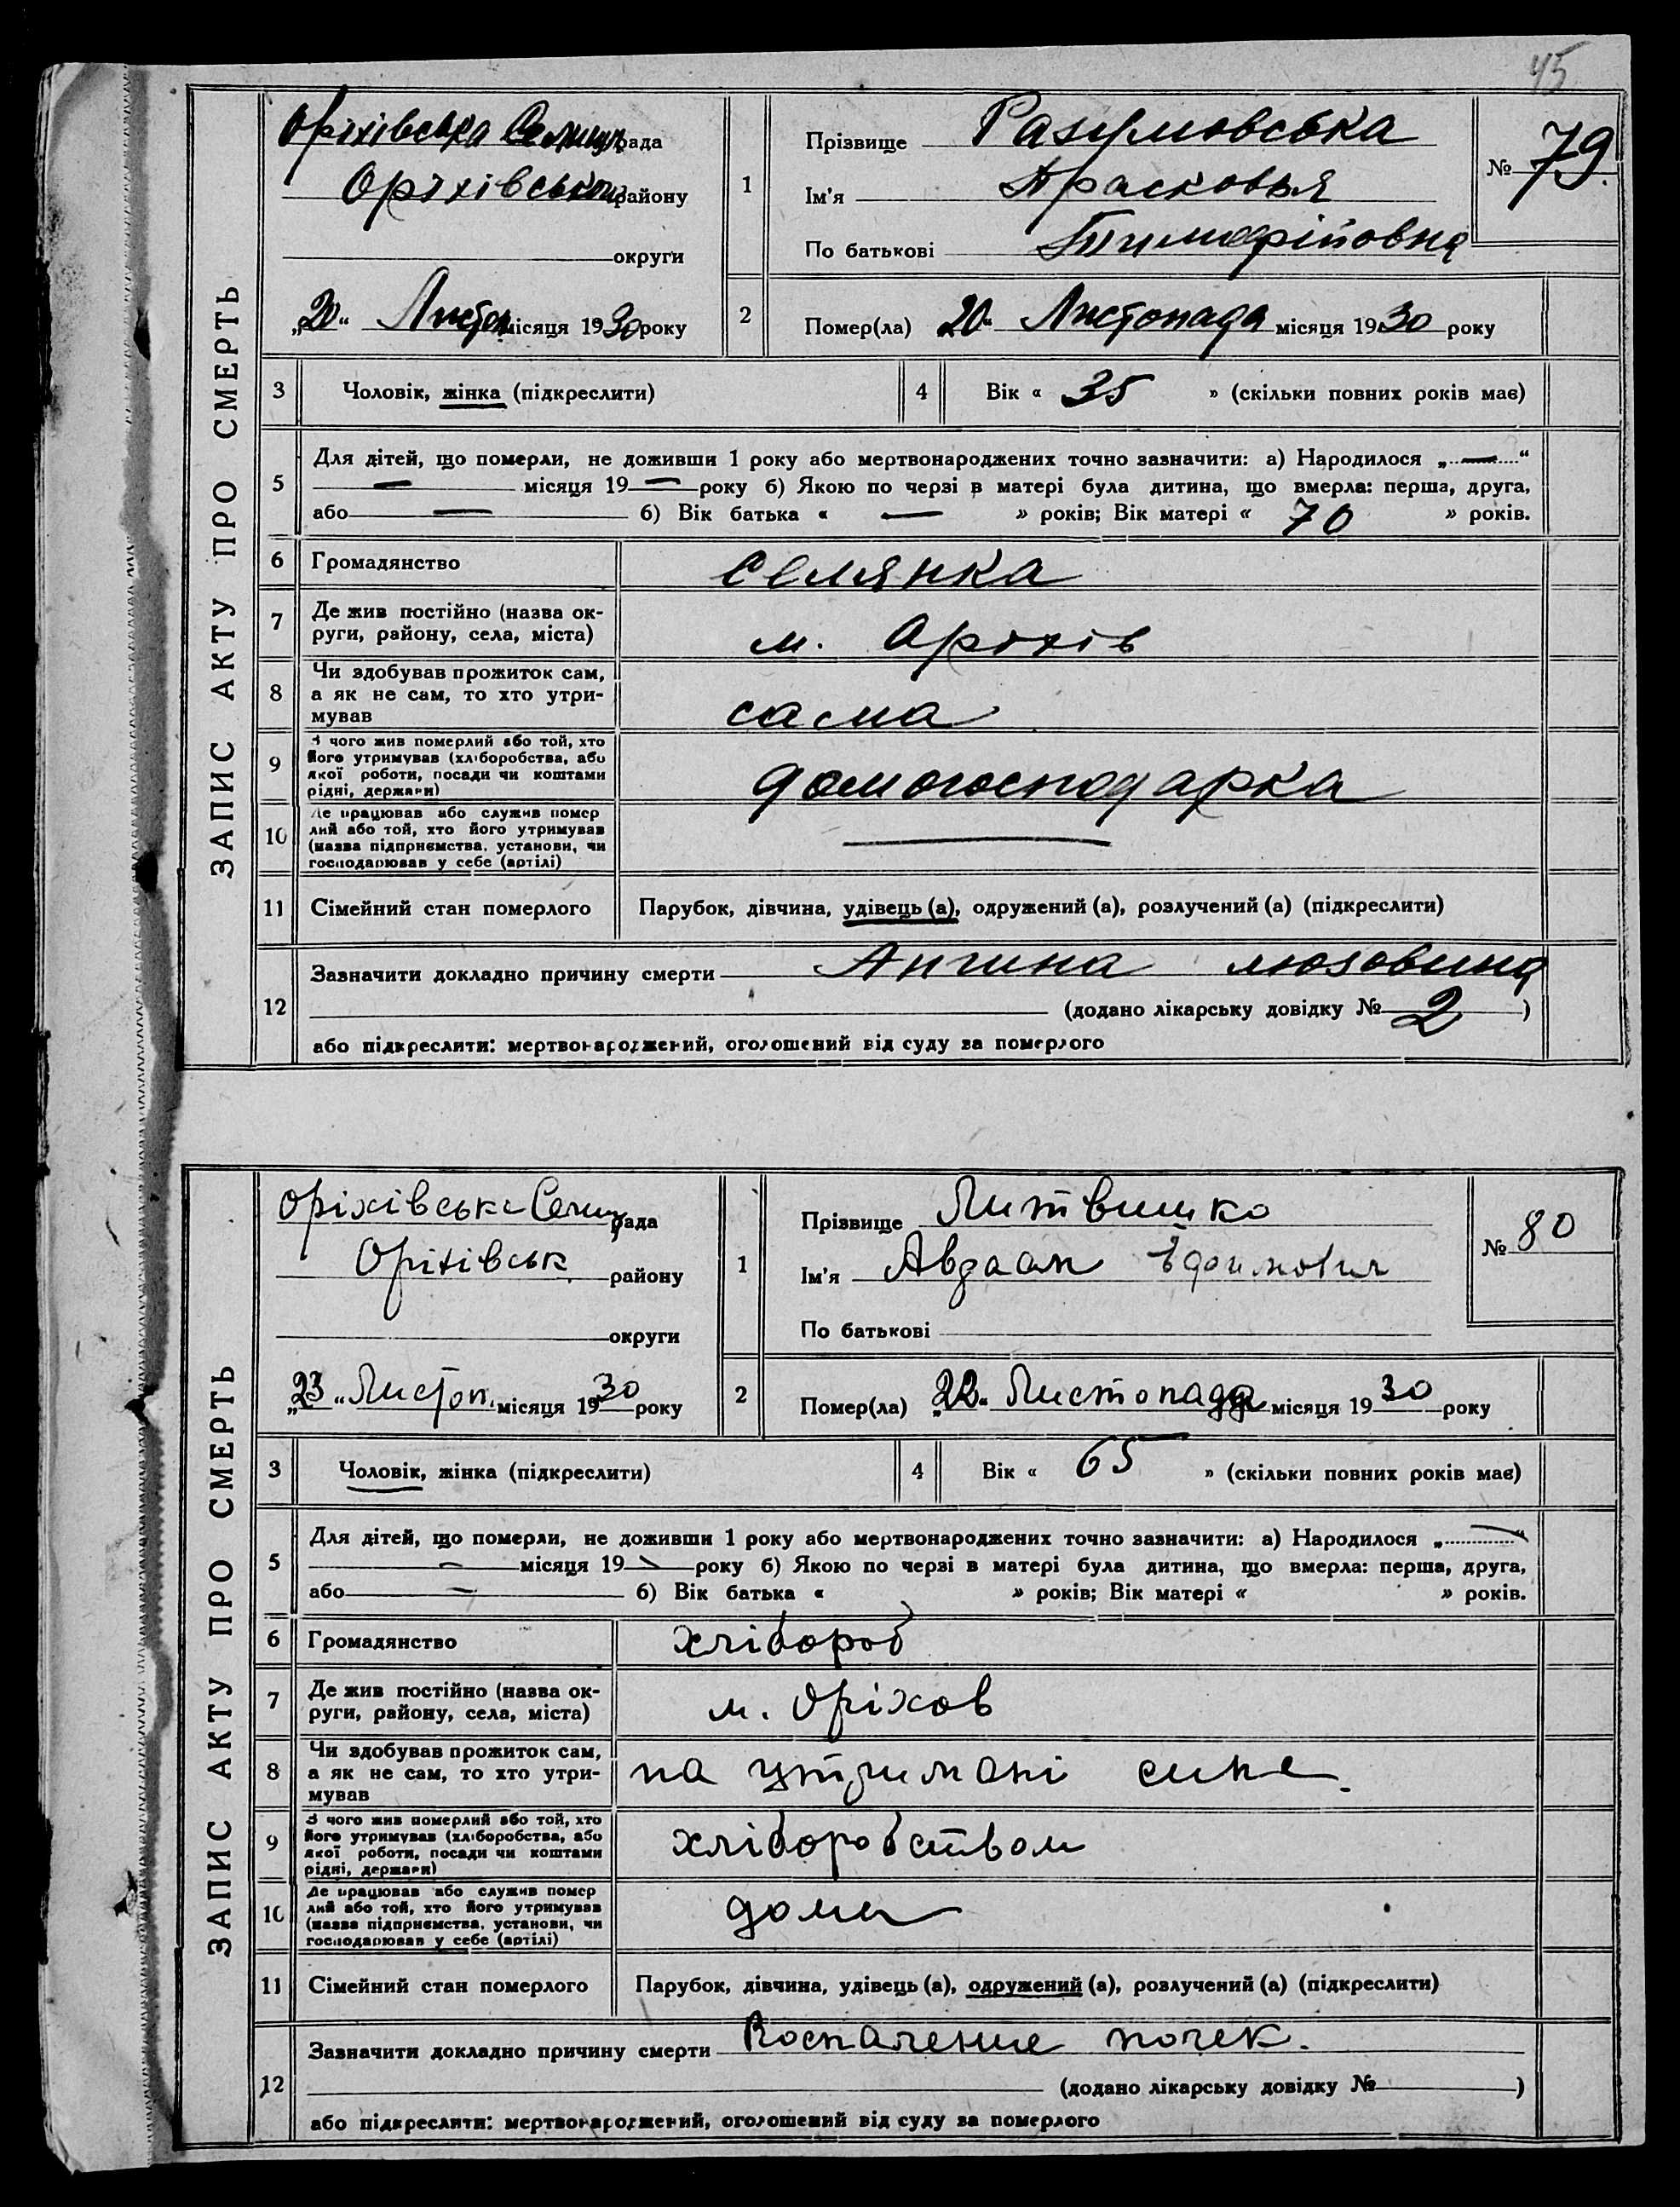 45
ЗАПИС АКТУ ПРО СМЕРТЬ
Оріхівська Селищ рада
Оріхівськ району
округи
„20“ Листоп місяця 1930 року
1
Прізвище Разумовська
Ім'я Прасковья
По батькові Тимофійовна
№ 79.
2
Помер(ла) 20 Листопада місяця 1930 року
3
Чоловік, жінка (підкреслити)
4
Вік « 35 » (скільки повних років має)
5
Для дітей, що померли, не доживши 1 року або мертвонароджених точно зазначити: а) Народилося „—“
— місяця 19— року б) Якою по черзі в матері була дитина, що вмерла: перша, друга,
або — б) Вік батька « — » років; Вік матері « 70 » років.
6
Громадянство
селянка
7
Де жив постійно (назва ок-
руги, району, села, міста)
м. Оріхів
8
Чи здобував прожиток сам,
а як не сам, то хто утри-
мував
сама
9
З чого жив померлий або той, хто
його утримував (хліборобства, або
якої роботи, посади чи коштами
рідні, держави)
домогосподарка
10
Де працював або служив помер
лий або той, хто його утримував
(назва підприємства, установи, чи
господарював у себе (артілі)
—
11
Сімейний стан померлого
Парубок, дівчина, удівець (а), одружений (а), розлучений (а) (підкреслити)
12
Зазначити докладно причину смерти Ангина
(додано лікарську довідку № 2 )
або підкреслити: мертвонароджений, оголошений від суду за померлого
ЗАПИС АКТУ ПРО СМЕРТЬ
Оріхівська Селищ рада
Оріхівськ. району
округи
„23“ Листоп. місяця 1930 року
1
Прізвище Литвишко
Ім'я
По батькові
№ 80
2
Помер(ла) „22“ Листопада місяця 1930 року
3
Чоловік, жінка (підкреслити)
4
Вік « 65 » (скільки повних років має)
5
Для дітей, що померли, не доживши 1 року або мертвонароджених точно зазначити: а) Народилося „—“
— місяця 19— року б) Якою по черзі в матері була дитина, що вмерла: перша, друга,
або — б) Вік батька « » років; Вік матері « » років.
6
Громадянство
хлібороб
7
Де жив постійно (назва ок-
руги, району, села, міста)
м. Оріхов
8
Чи здобував прожиток сам,
а як не сам, то хто утри-
мував
на утримані сина.
9
З чого жив померлий або той, хто
його утримував (хліборобства, або
якої роботи, посади чи коштами
рідні, держави)
хліборобством
10
Де працював або служив помер
лий або той, хто його утримував
(назва підприємства, установи, чи
господарював у себе (артілі)
дома
11
Сімейний стан померлого
Парубок, дівчина, удівець (а), одружений (а), розлучений (а) (підкреслити)
12
Зазначити докладно причину смерти Воспаление почек.
(додано лікарську довідку № )
або підкреслити: мертвонароджений, оголошений від суду за померлого